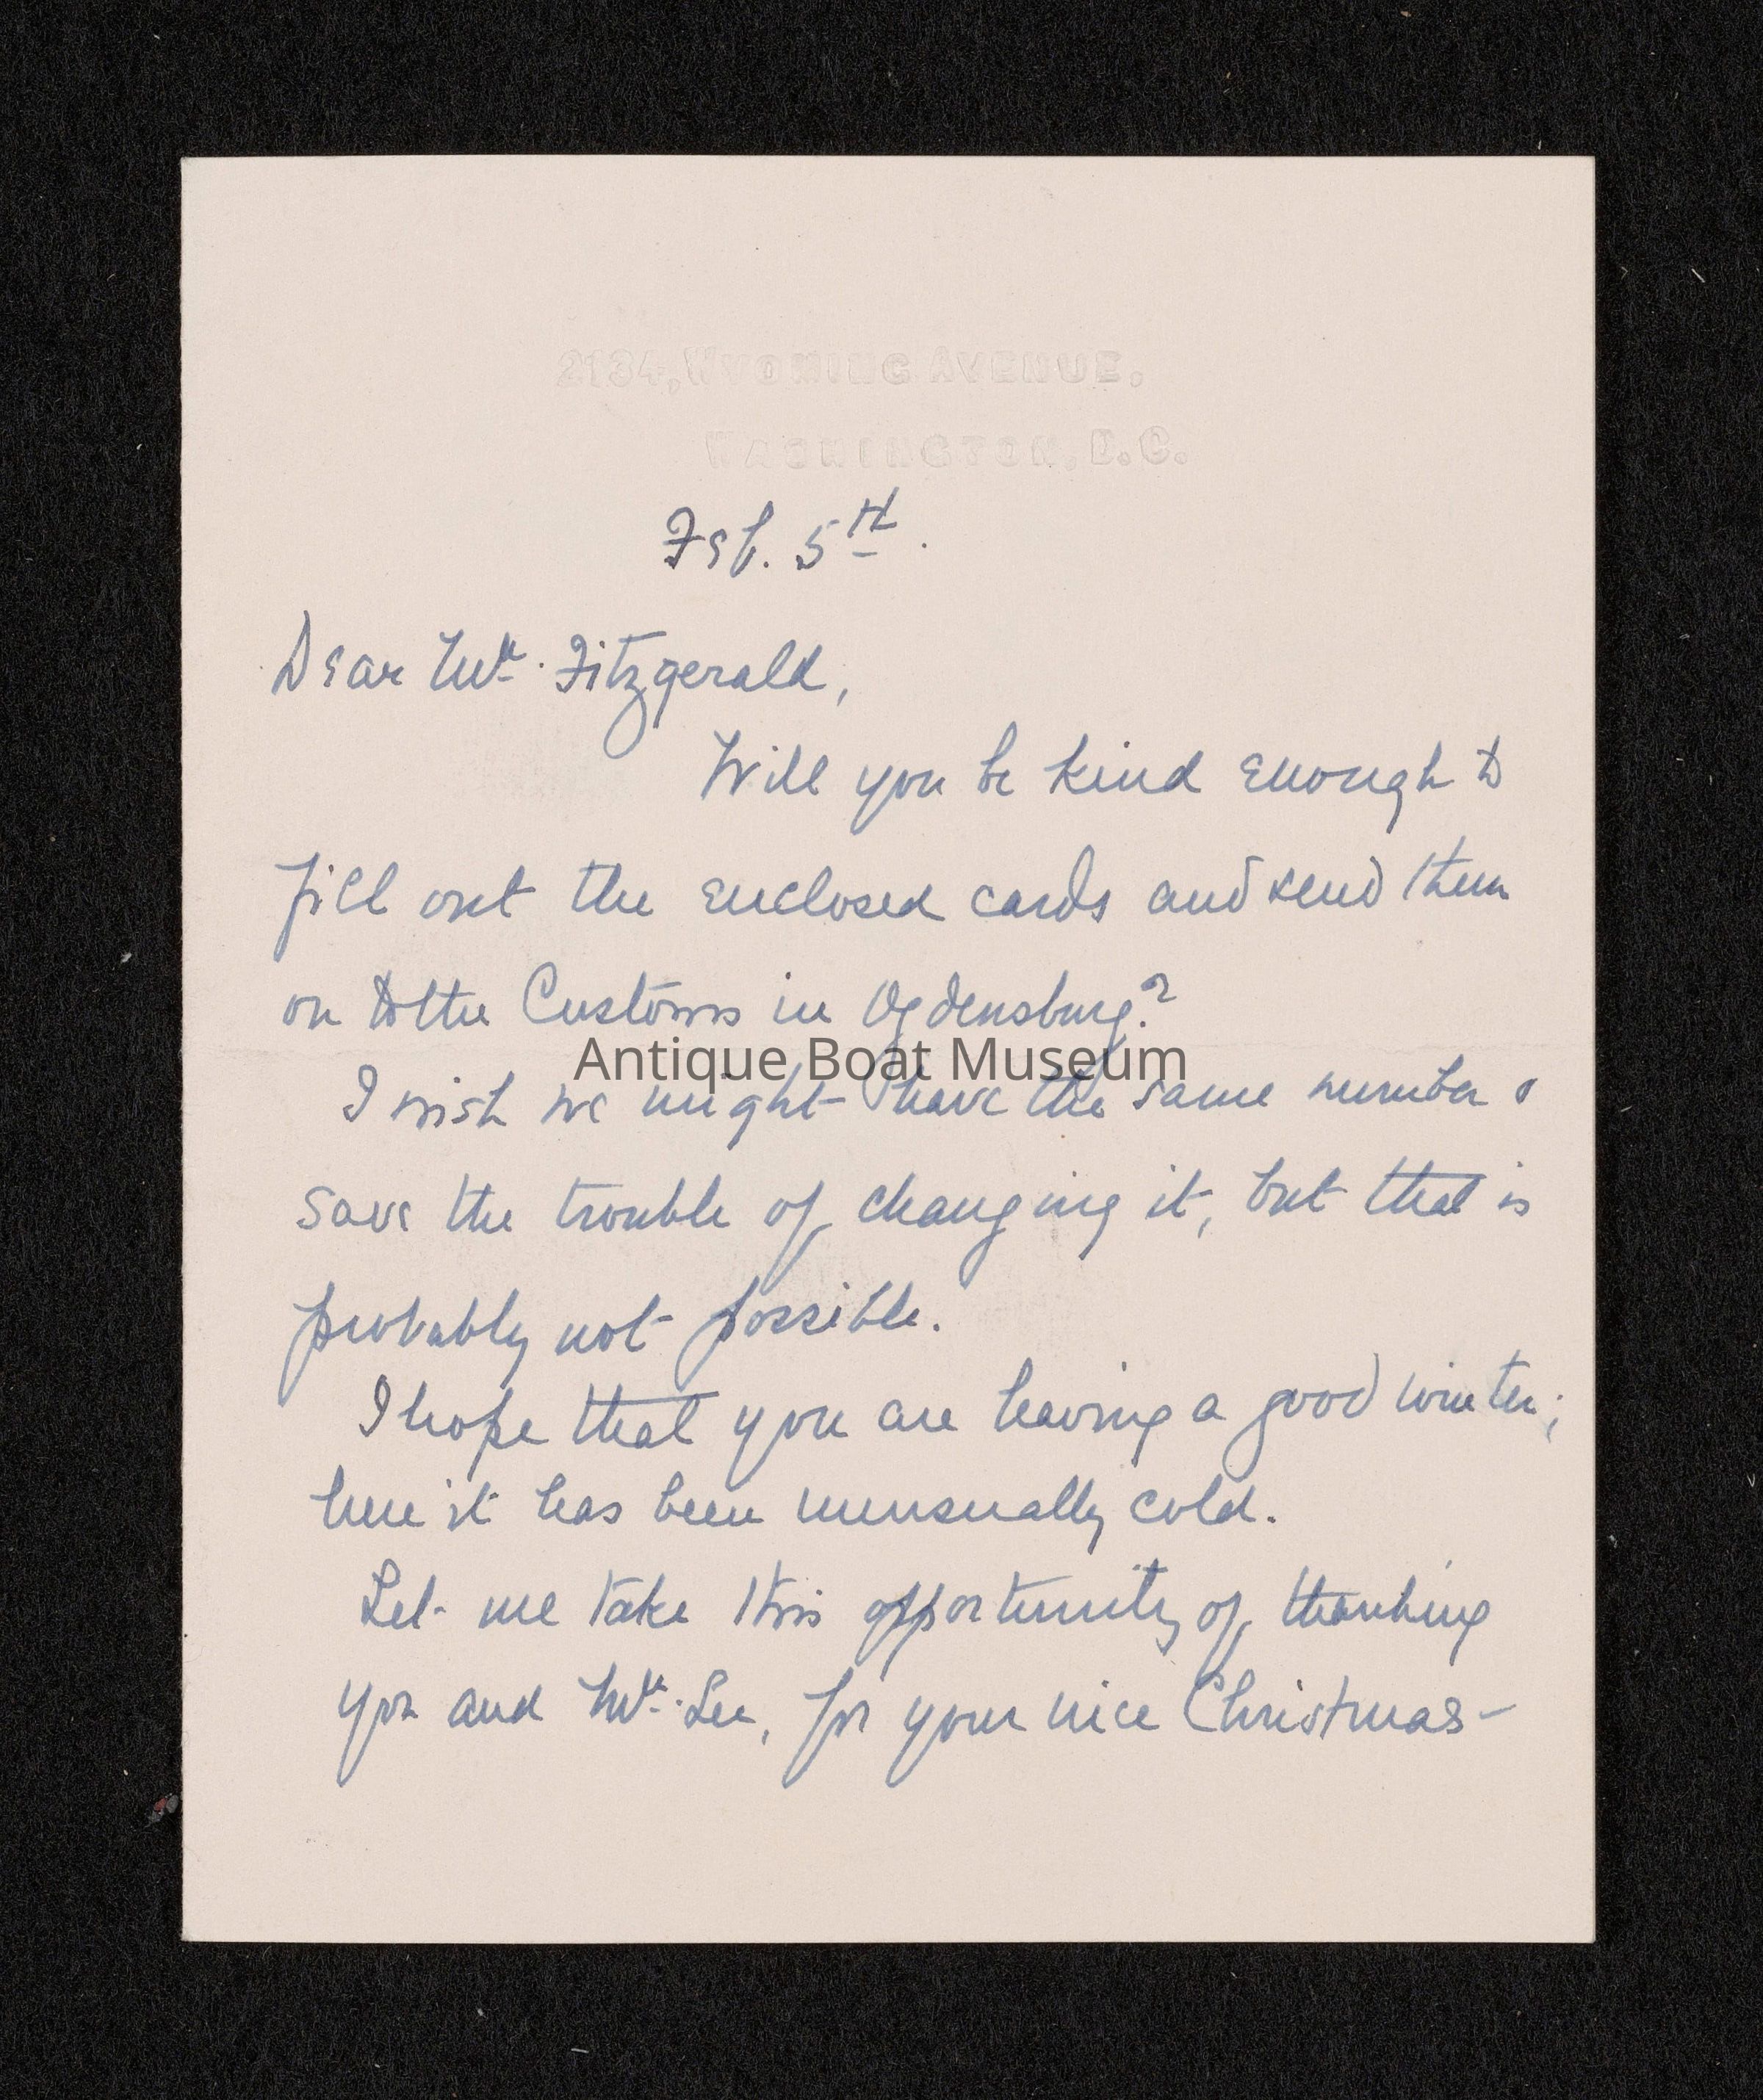 2134, WYOMING AVENUE,
WASHINGTON, D.C.
Feb. 5th.
Dear Mr. Fitzgerald,
Will you be kind enough to
fill out the enclosed cards and send them
on to the Customs in Ogdensburg?
Antique Boat Museum
I wish we might have the same number &
save the trouble of changing it, but that is
probably not possible.
I hope that you are having a good winter;
here it has been unusually cold.
Let me take this opportunity of thanking
you and Mr. Lee, for your nice Christmas-